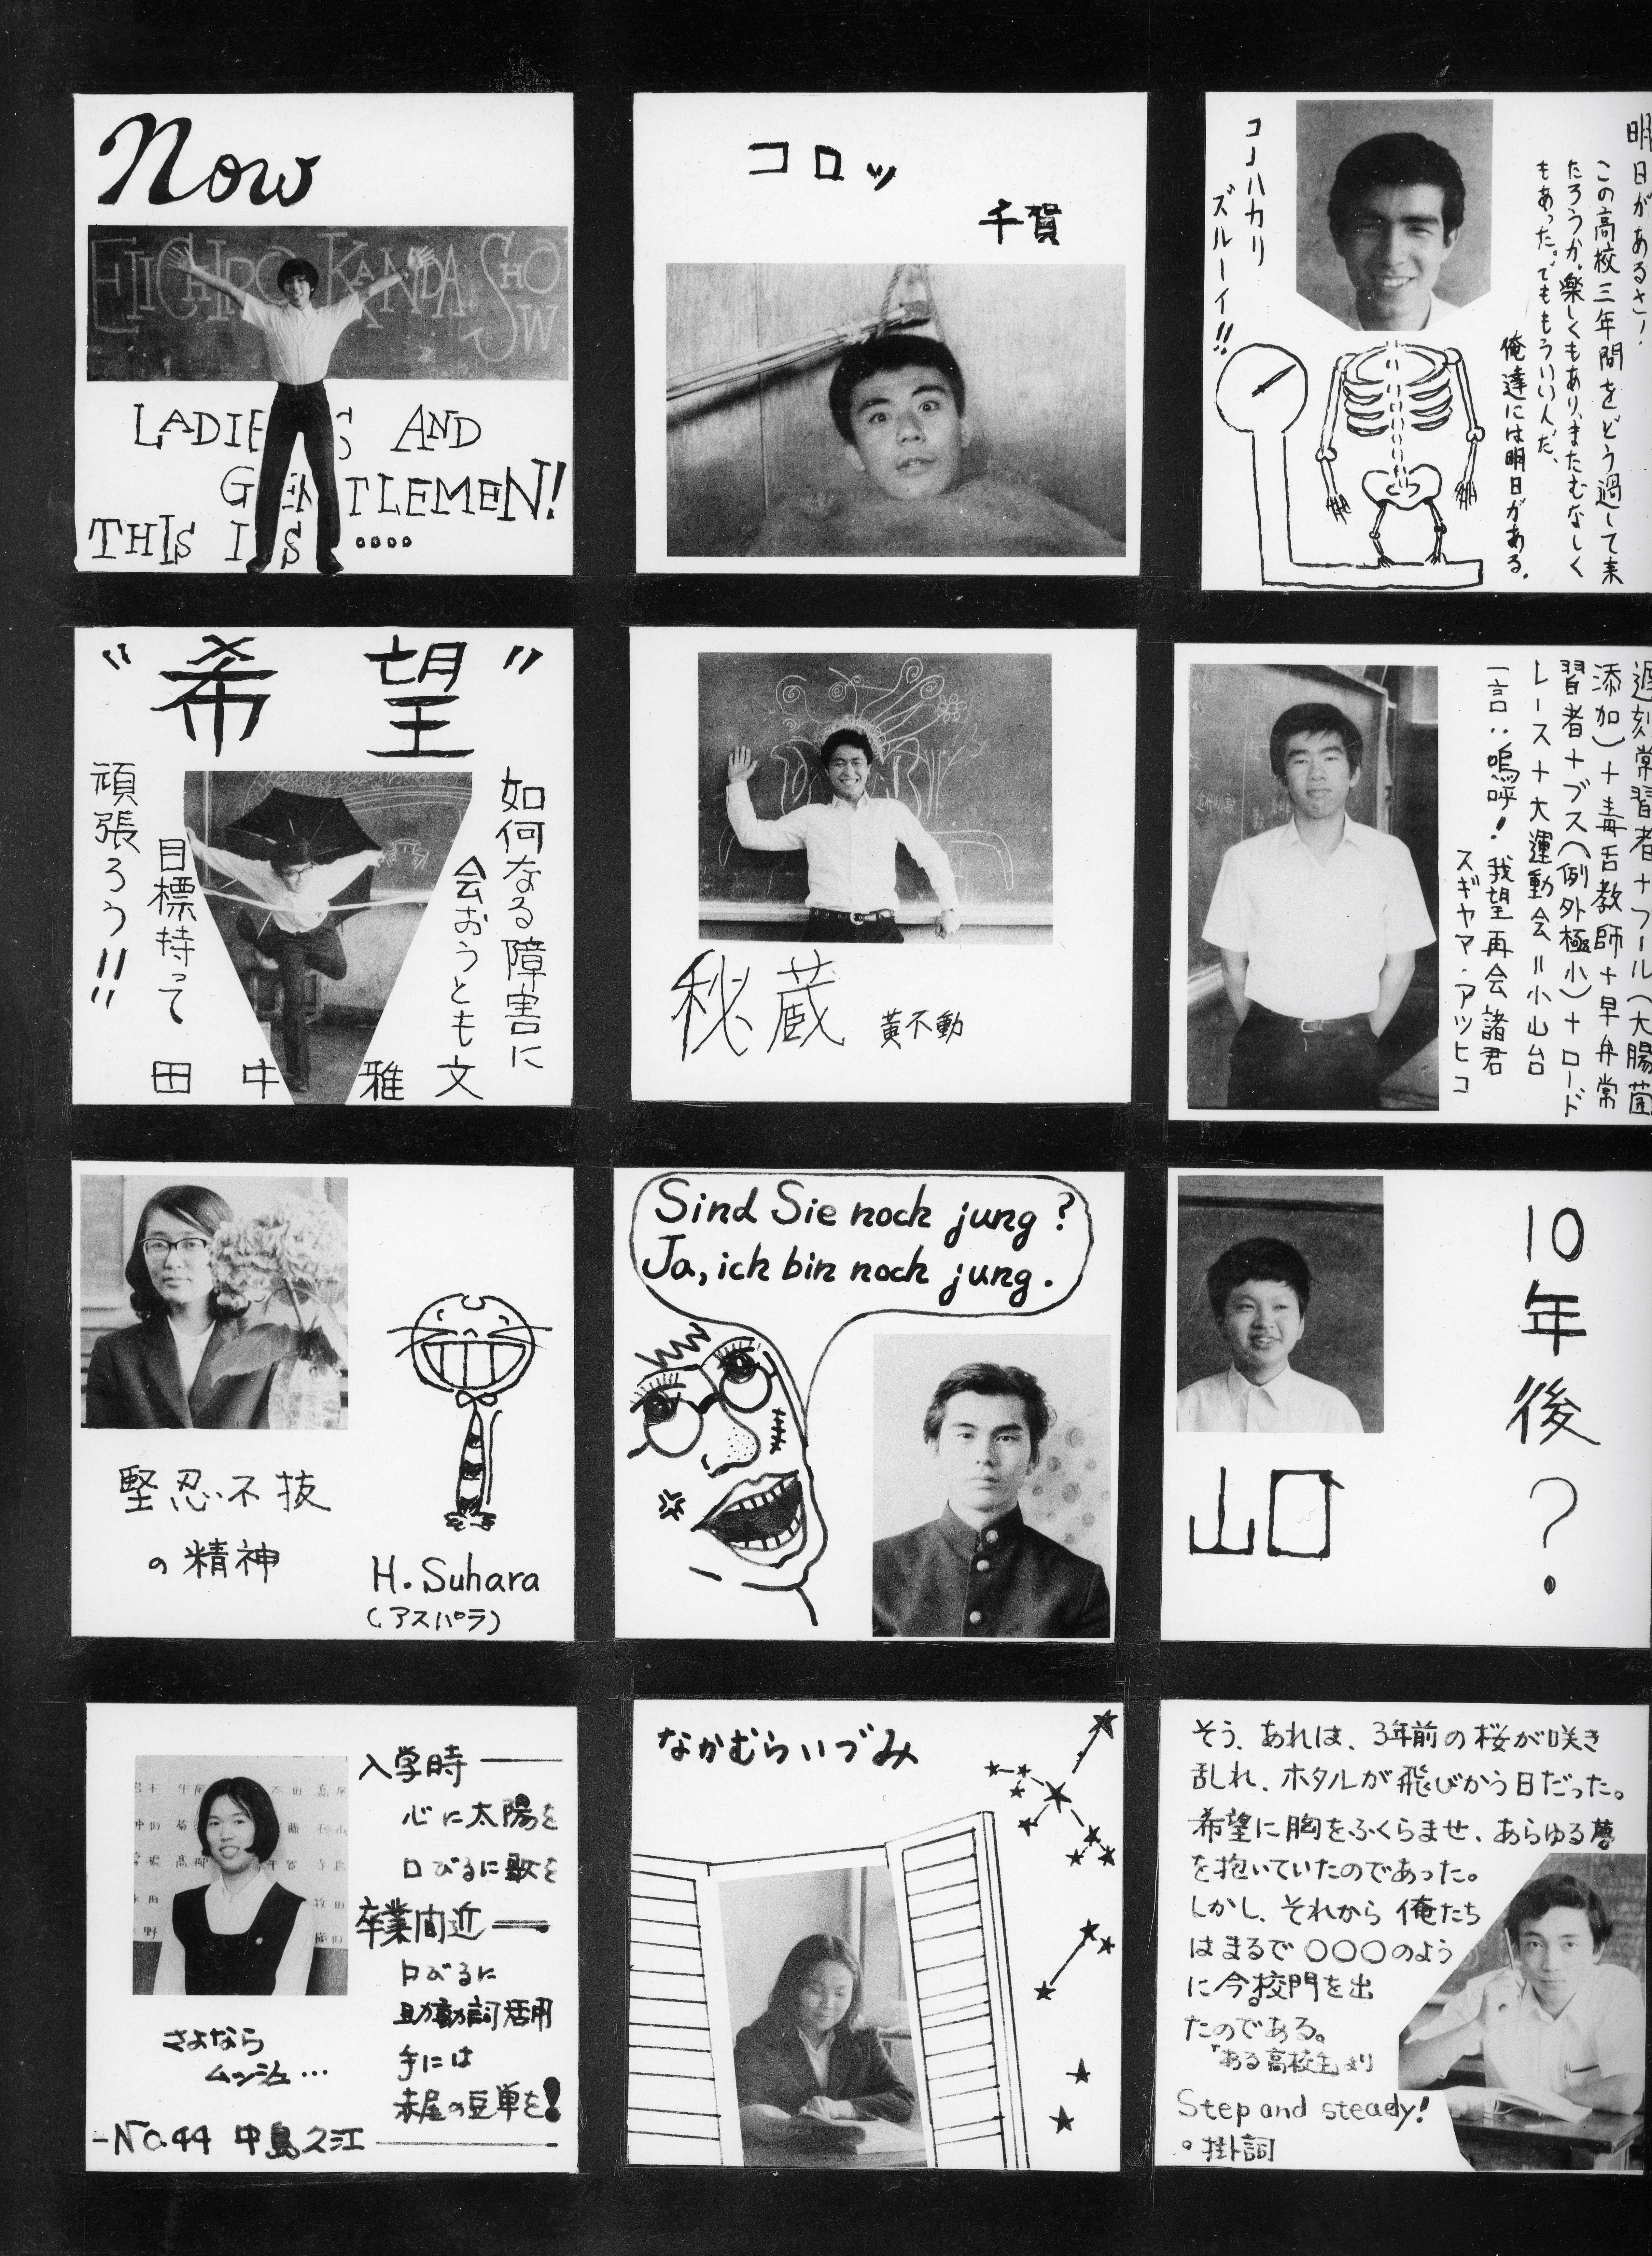 Now
EIICHIRO KANDA SHOW
LADIES AND
GENTLEMEN!
THIS IS ....
コロッ
千賀
明日があるさ!
この高校三年間をどう過して来
たろうか。楽しくもあり、またむなしく
もあった。でももういいんだ、
俺達には明日がある。
コーハカリ
ズルーイ!!
“希望”
如何なる障害に
会おうとも
目標持って
頑張ろう!!
田中雅文
秘蔵 黄不動
遅刻常習者+プール(大腸菌
添加)+毒舌教師+早弁常
習者+ブス(例外極小)+ロード
レース+大運動会=小山台
一言:嗚呼!我望再会諸君
スギヤマ・アツヒコ
堅忍不抜
の精神
H. Suhara
(アスパラ)
Sind Sie noch jung?
Ja, ich bin noch jung.
10年後?
山口
入学時──
心に太陽を
口びるに歌を
卒業間近──
口びるに
助動詞活用
手には
赤尾の豆単を!
さよなら
ムッシュ…
-No.44 中島久江
なかむらいづみ
そう、あれは、3年前の桜が咲き
乱れ、ホタルが飛びかう日だった。
希望に胸をふくらませ、あらゆる夢
を抱いていたのであった。
しかし、それから俺たち
はまるで〇〇〇のよう
に今校門を出
たのである。
「ある高校生」より
Step and steady!
。掛詞